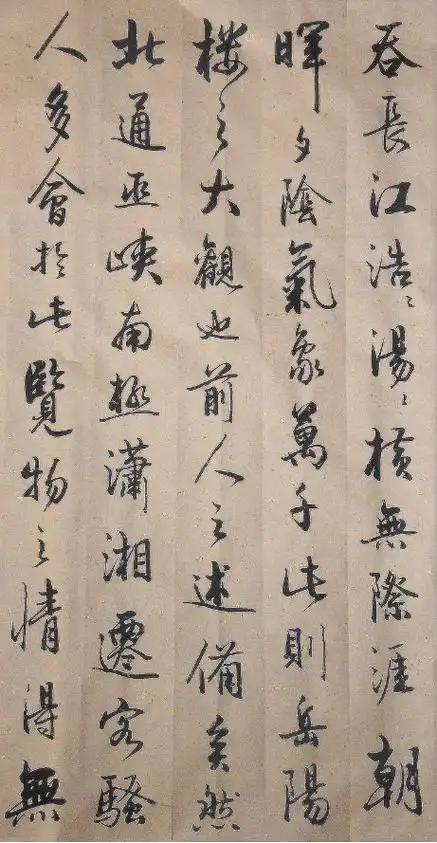 吞長江浩〻湯〻横無際涯朝
暉夕陰氣象萬千此則岳陽
楼之大觀也前人之述備矣然
北通巫峽南極瀟湘遷客騷
人多會於此覽物之情得無